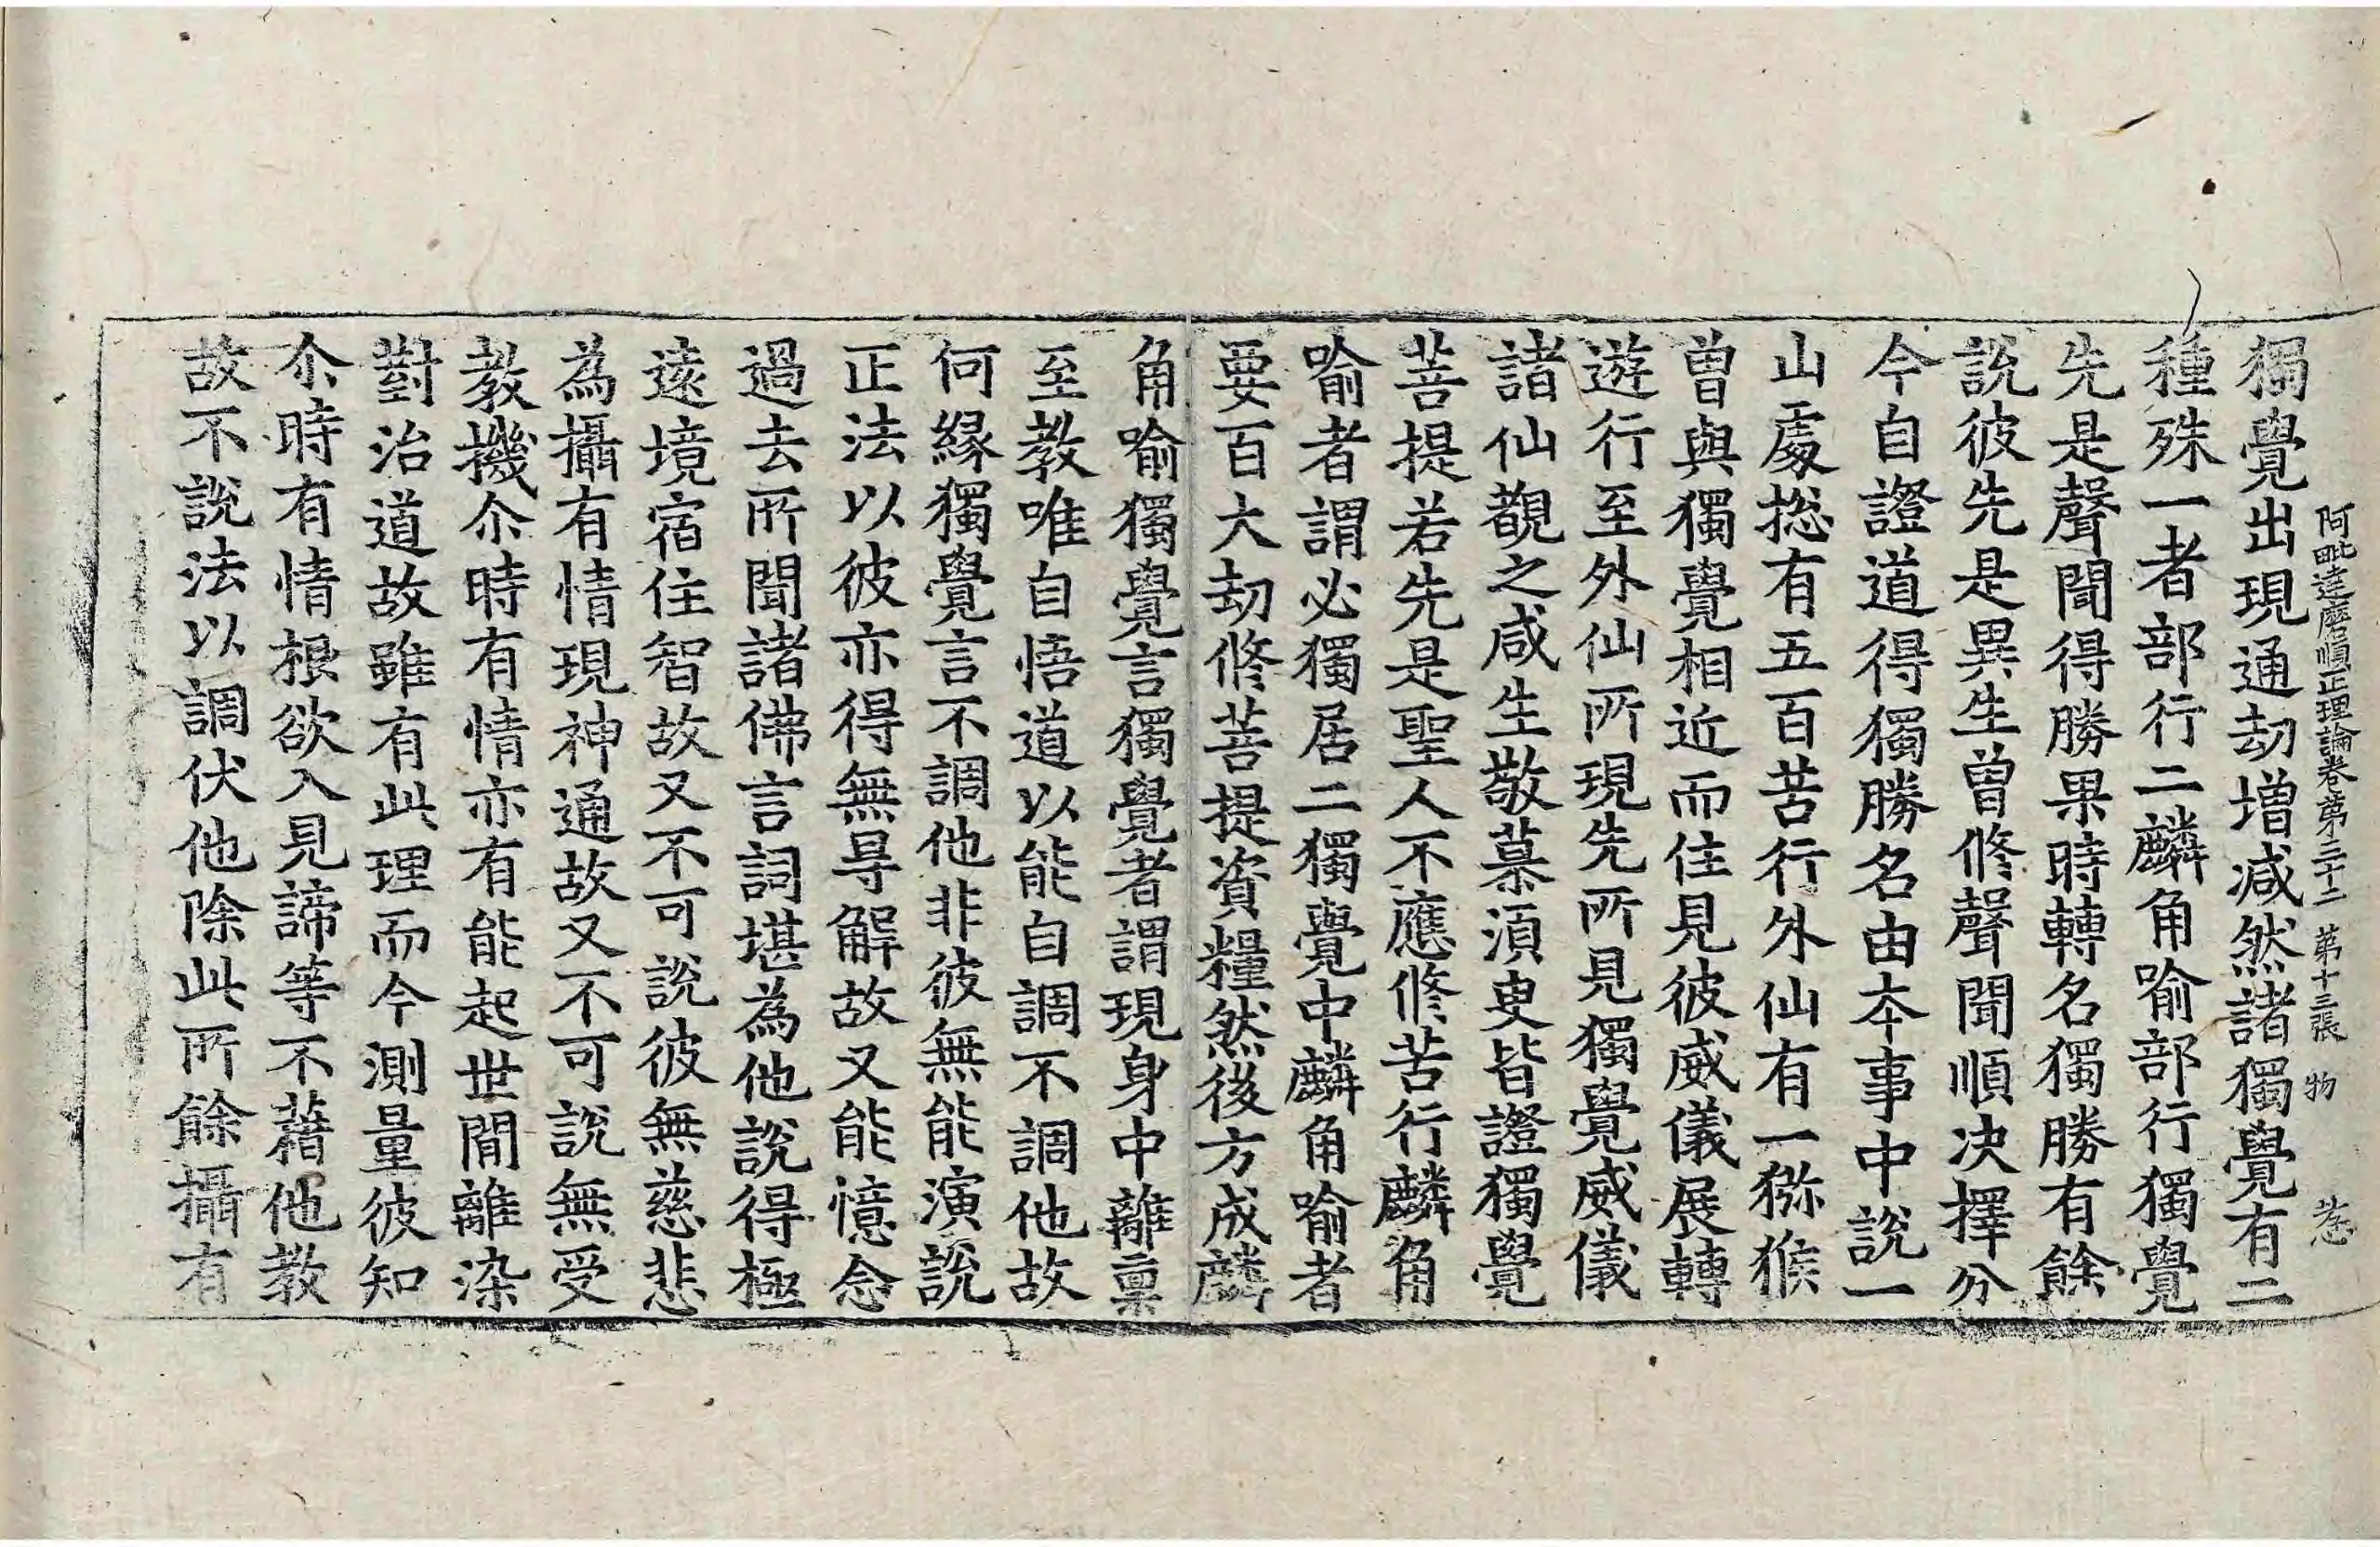 阿毗達磨順正理論卷第三十二 第十三張 物
獨覺出現通劫增減然諸獨覺有二
種殊一者部行二麟角喻部行獨覺
先是聲聞得勝果時轉名獨勝有餘
說彼先是異生曾修聲聞順决擇分
今自證道得獨勝名由本事中說一
山處揔有五百苦行外仙有一猕猴
曾與獨覺相近而住見彼威儀展轉
遊行至外仙所現先所見獨覺威儀
諸仙覩之咸生敬慕湏臾皆證獨覺
菩提若先是聖人不應修苦行麟角
喻者謂必獨居二獨覺中麟角喻者
要百大劫修菩提資糧然後方成麟
角喻獨覺言獨覺者謂現身中離稟
至教唯自悟道以能自調不調他故
何緣獨覺言不調他非彼無能演說
正法以彼亦得無㝵解故又能憶念
過去所聞諸佛言詞堪為他說得極
遠境宿住智故又不可說彼無慈悲
為攝有情現神通故又不可說無受
教機尒時有情亦有能起世間離染
對治道故雖有此理而今測量彼知
尒時有情根欲入見諦等不藉他教
故不說法以調伏他除此所餘攝有